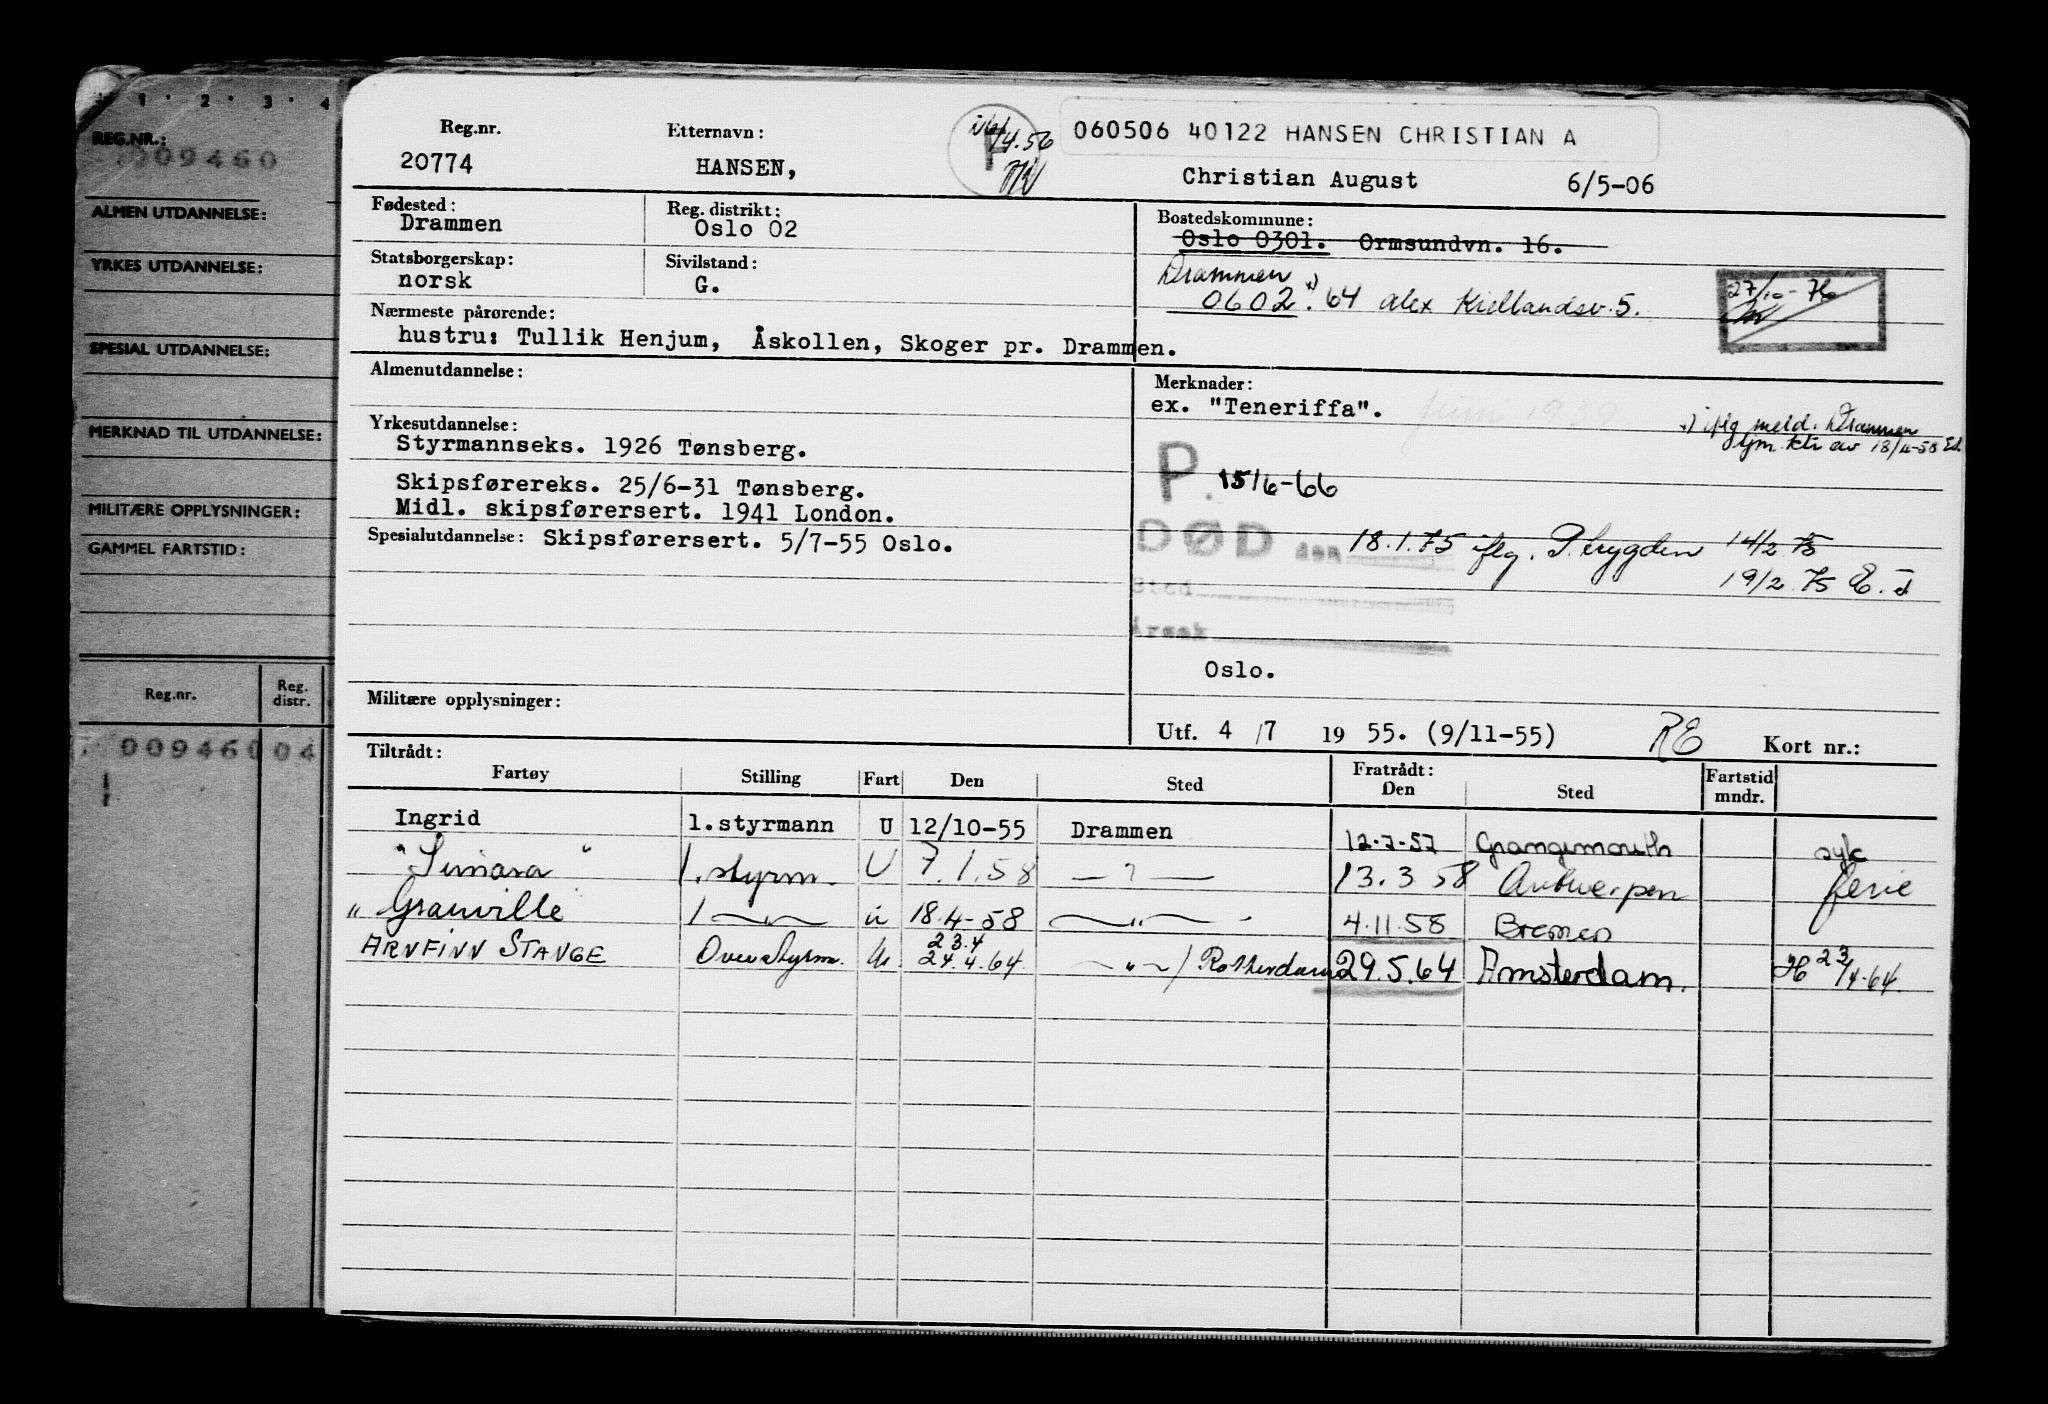 1 · 2 · 3 · 4
REG.NR.:
009460
ALMEN UTDANNELSE:
YRKES UTDANNELSE:
SPESIAL UTDANNELSE:
MERKNAD TIL UTDANNELSE:
MILITÆRE OPPLYSNINGER:
GAMMEL FARTSTID:
Reg.nr. Reg. distr.
009460 04
Reg.nr. Etternavn: 060506 40122 HANSEN CHRISTIAN A
20774 HANSEN, Christian August 6/5-06
Fødested: Reg. distrikt: Bostedskommune:
Drammen Oslo 02 Oslo 0301. Ormsundvn. 16.
Statsborgerskap: Sivilstand: Drammen
norsk G. 0602 64 Alex Kiellandsv. 5.
27/10-76
Nærmeste pårørende:
hustru: Tullik Henjum, Åskollen, Skoger pr. Drammen.
Almenutdannelse: Merknader:
ex. "Teneriffa". Juni 1939
x) iflg meld. Drammen
sjm.ktr av 18/4-58 Ed.
Yrkesutdannelse:
Styrmannseks. 1926 Tønsberg.
Skipsførereks. 25/6-31 Tønsberg.
Midl. skipsførersert. 1941 London.
P. 15/6-66
Spesialutdannelse: Skipsførersert. 5/7-55 Oslo.
DØD den 18.1.75 iflg. P. trygden 14/2 75
Sted 19/2 75
Årsak
Oslo.
Militære opplysninger:
Utf. 4/7 1955. (9/11-55) RE Kort nr.:
Tiltrådt: Fratrådt:
Fartøy Stilling Fart Den Sted Den Sted Fartstid mndr.
Ingrid 1.styrmann U 12/10-55 Drammen 12-7-57 Grangemouth syk
"Simara" 1. styrm. U 7.1.58 — ? — 13.3 58 Antwerpen ferie
" Granville 1 —"— u 18.4-58 —"— 4.11.58 Bremen
ARNFINN STANGE Overstyrm. U. 23.4 24.4.64. —"—/ Rotterdam 29.5.64 Amsterdam. 23/4-64.